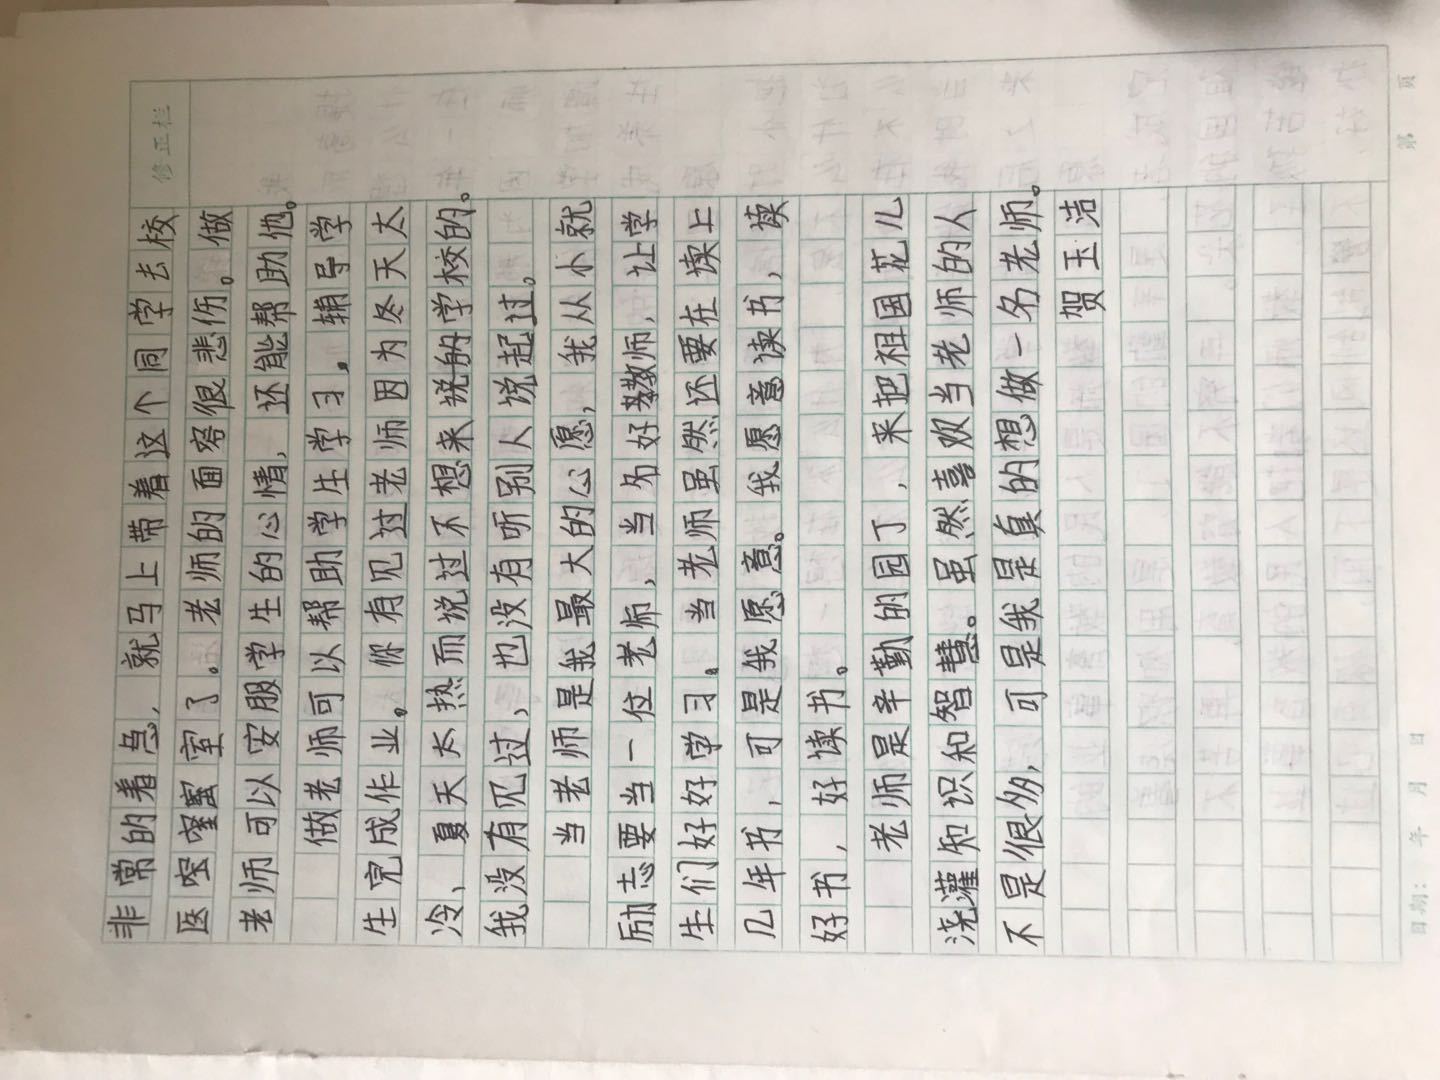 修正栏
非常的着急，就马上带着这个同学去校
医室了。老师的面容很悲伤。做
老师可以安服学生的心情，还能帮助他。
做老师可以帮助学生学习。辅导学
生完成作业。你有见过老师因为冬天太
冷、夏天太热而说过不想来学校的。
我没有见过，也没有听别人说起过。
当老师是我最大的心愿，我从小就
励志要当一位老师，当名好教师，让学
生们好好学习。当老师虽然还要在读上
几年书，可是我愿意。我愿意读书，读
好书，好读书。
老师是辛勤的园丁，来把祖国花儿
浇灌知识和智慧。虽然喜欢当老师的人
不是很多，可是我是真的想做一名老师。
贺玉洁
日期： 年 月 日
第 页